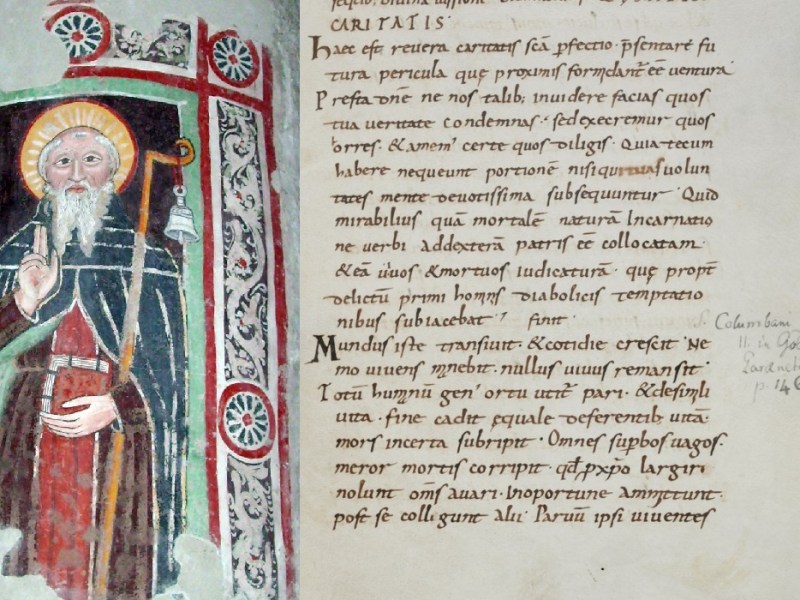 CARITATIS·
haec est revera caritatis scā pfectio· psentare fu
tura pericula quę proximis formidant eē ventura
Presta dnē ne nos talib; invidere facias quos
tua veritate condemnas· sed execremur quos
horres· & amem certe quos diligis· Quia tecum
habere nequeunt portionē nisi qui tuas volun
tates mente devotissima subsequuntur· Quid
mirabilius quā mortalē naturā Incarnatio
ne verbi ad dexterā patris eē collocatam·
& eā vivos & mortuos iudicaturā· quę propt
delictū primi hominis diabolicis temptatio
nibus subiacebat· finit·
Mundus iste transivit· & cotidie crescit Ne
mo vivens manebit· nullus vivus remansit·
Totū humanū gen' ortu utit pari· & desimili
vita· fine cadit ęquale deferentib; vitā·
mors incerta subripit· Omnes supbos vagos·
meror mortis corripit· qd p xpo largiri
nolunt oms avari· Inoportune amittunt·
post se colligunt alii Parvū ipsi viventes
S. Columbani
p. 146